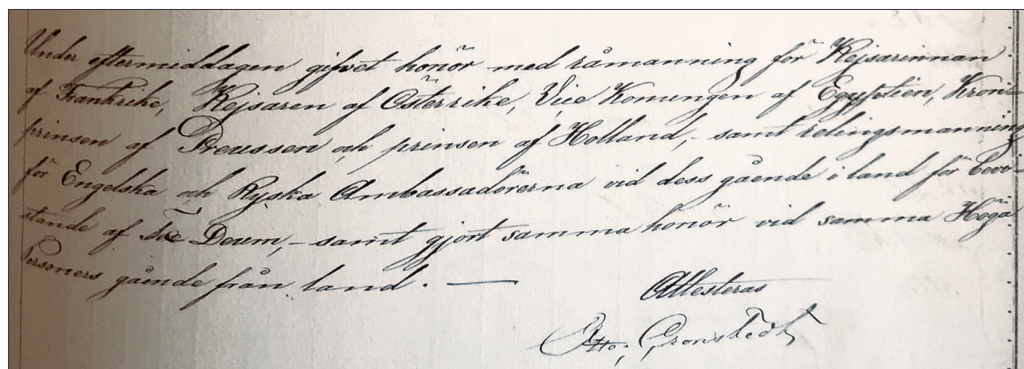 Under eftermiddagen gifvet honör med råmanning för Kejsarinnan
af Frankrike, Kejsaren af Österrike, Vice Konungen af Egyptien, Kron-
prinsen af Preussen och prinsen af Holland, - samt relingsmanning
för Engelska och Ryska Ambassadörerna vid dess gående i land för bevi-
stande af Te Deum, - samt gjort samma honör vid samma Höga
Personers gående från land. —
Attesteras
Otto Cronstedt